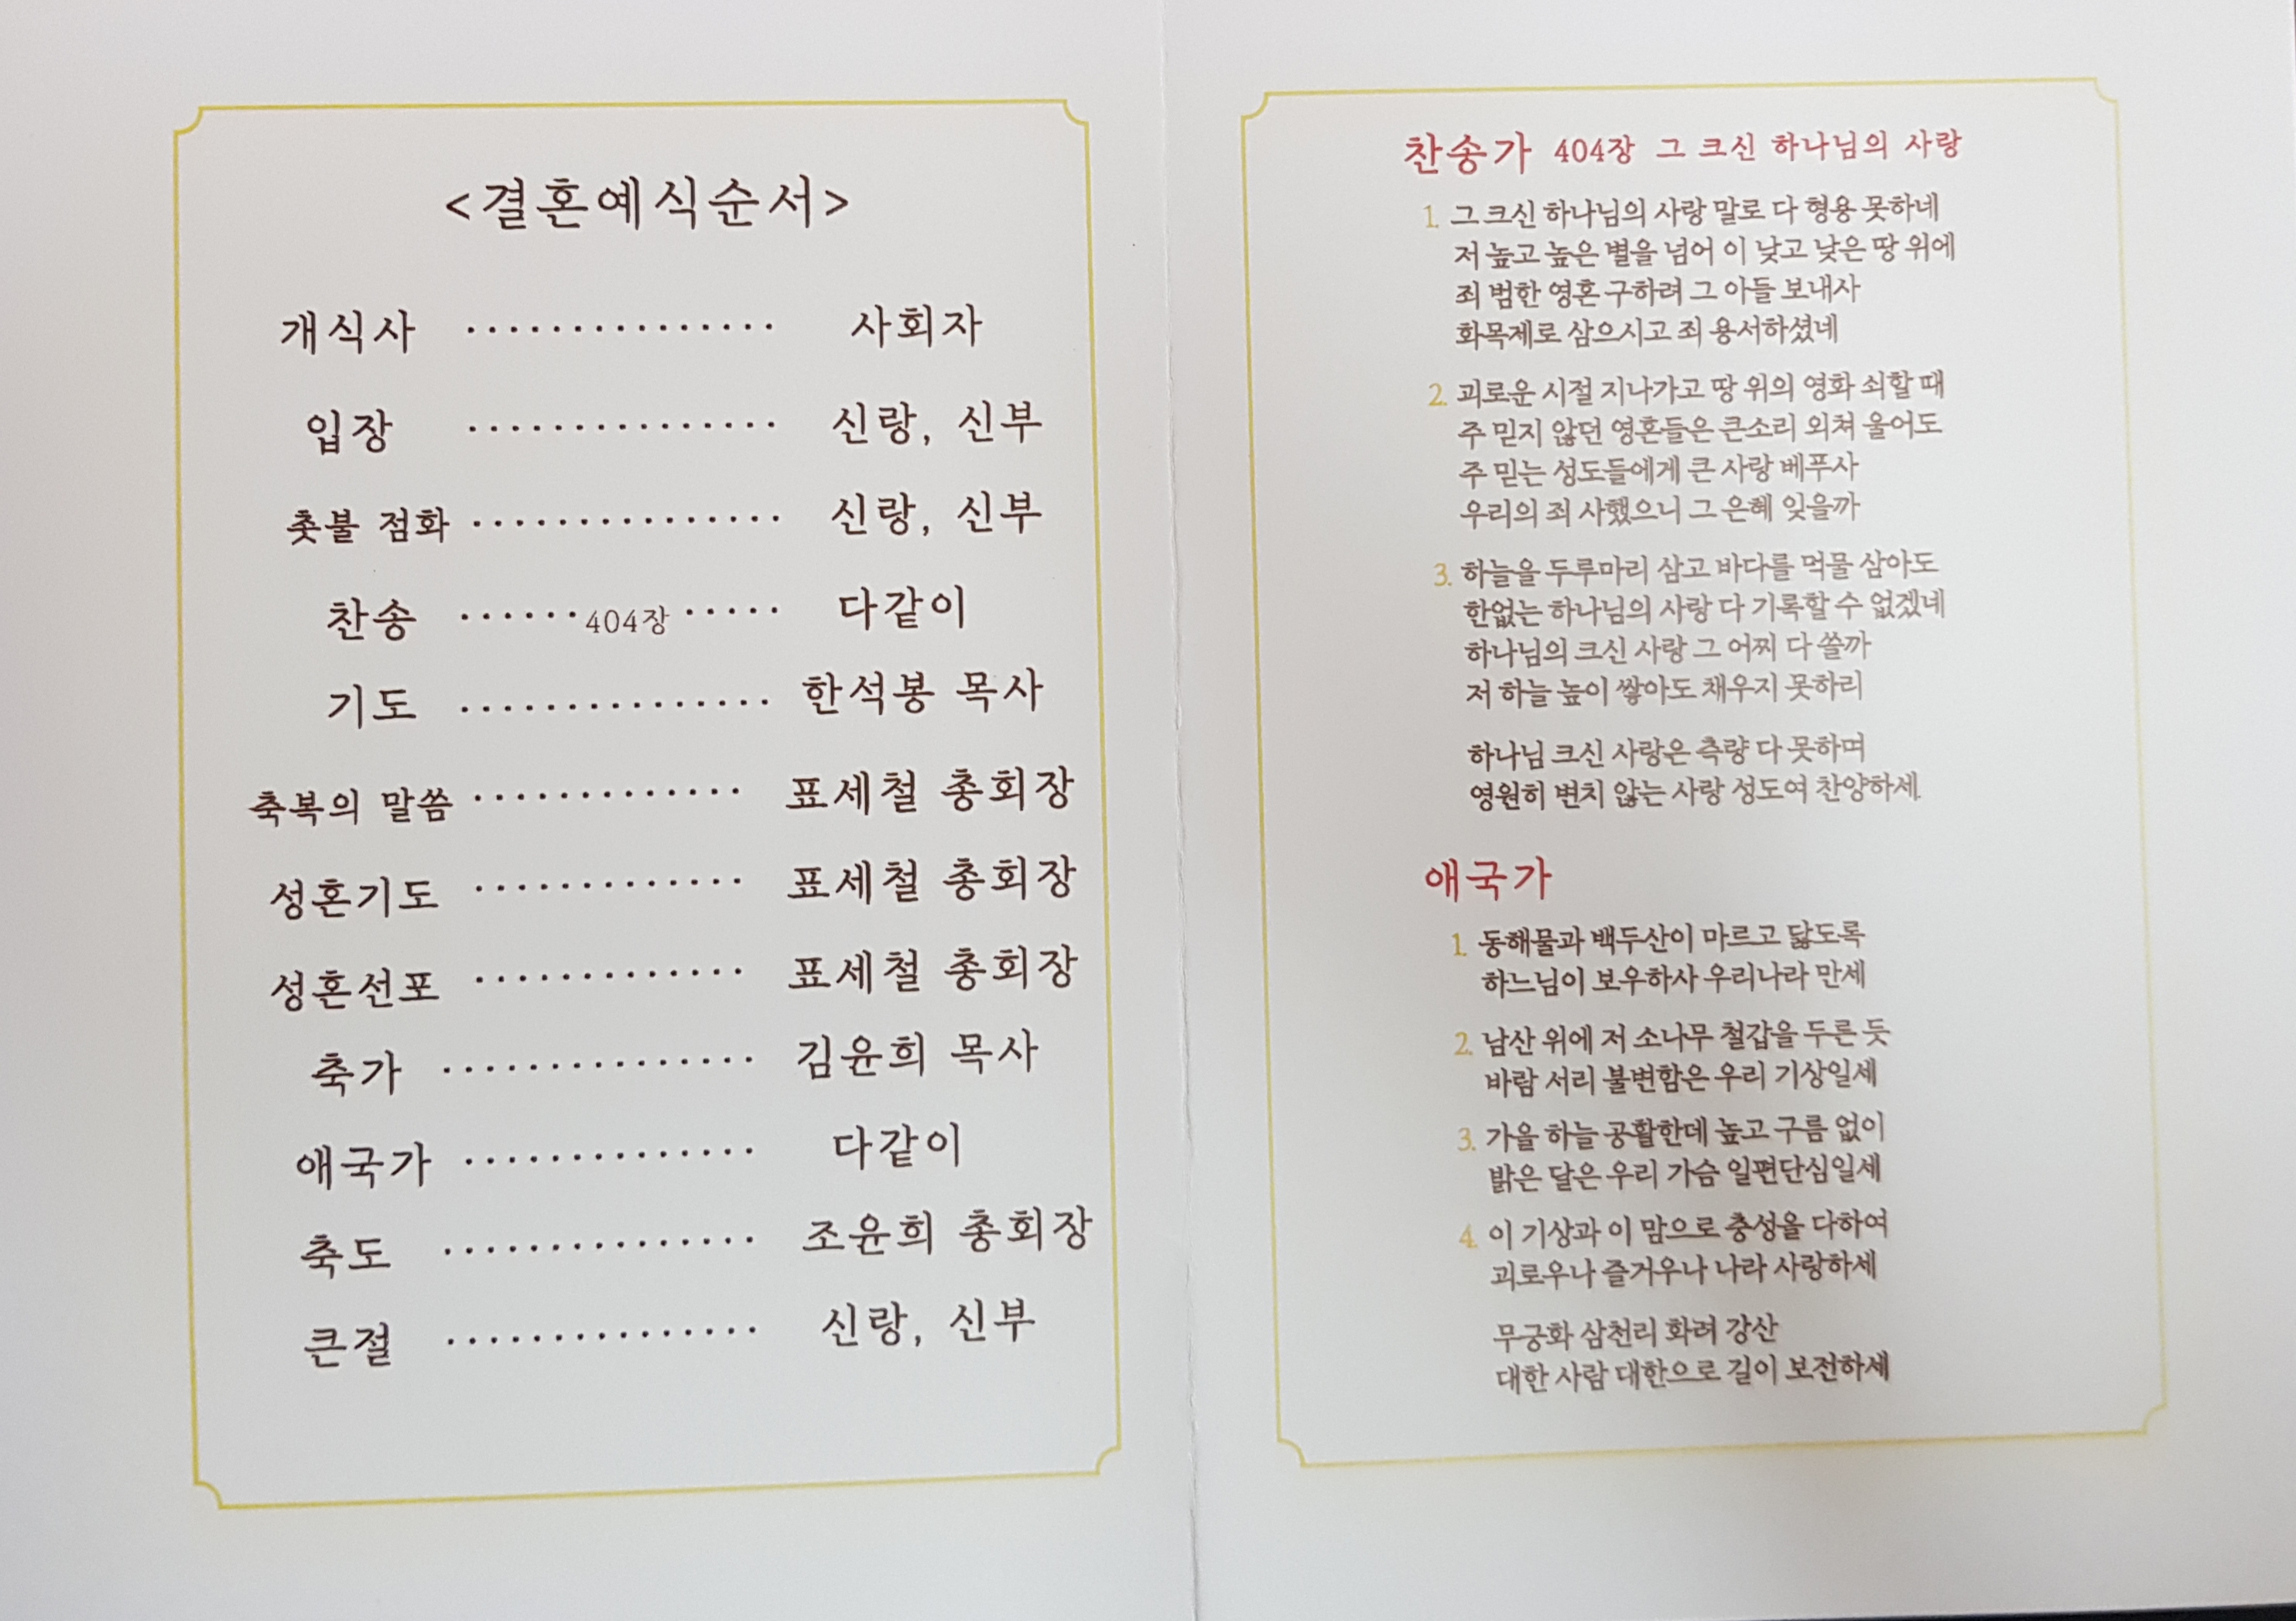 <결혼예식순서>
개식사 ··············· 사회자
입장 ··············· 신랑, 신부
촛불 점화 ··············· 신랑, 신부
찬송 ······404장····· 다같이
기도 ··············· 한석봉 목사
축복의 말씀 ············· 표세철 총회장
성혼기도 ············· 표세철 총회장
성혼선포 ············· 표세철 총회장
축가 ··············· 김윤희 목사
애국가 ·············· 다같이
축도 ··············· 조윤희 총회장
큰절 ··············· 신랑, 신부
찬송가 404장 그 크신 하나님의 사랑
1. 그 크신 하나님의 사랑 말로 다 형용 못하네
저 높고 높은 별을 넘어 이 낮고 낮은 땅 위에
죄 범한 영혼 구하려 그 아들 보내사
화목제로 삼으시고 죄 용서하셨네
2. 괴로운 시절 지나가고 땅 위의 영화 쇠할 때
주 믿지 않던 영혼들은 큰소리 외쳐 울어도
주 믿는 성도들에게 큰 사랑 베푸사
우리의 죄 사했으니 그 은혜 잊을까
3. 하늘을 두루마리 삼고 바다를 먹물 삼아도
한없는 하나님의 사랑 다 기록할 수 없겠네
하나님의 크신 사랑 그 어찌 다 쓸까
저 하늘 높이 쌓아도 채우지 못하리
하나님 크신 사랑은 측량 다 못하며
영원히 변치 않는 사랑 성도여 찬양하세.
애국가
1. 동해물과 백두산이 마르고 닳도록
하느님이 보우하사 우리나라 만세
2. 남산 위에 저 소나무 철갑을 두른 듯
바람 서리 불변함은 우리 기상일세
3. 가을 하늘 공활한데 높고 구름 없이
밝은 달은 우리 가슴 일편단심일세
4. 이 기상과 이 맘으로 충성을 다하여
괴로우나 즐거우나 나라 사랑하세
무궁화 삼천리 화려 강산
대한 사람 대한으로 길이 보전하세